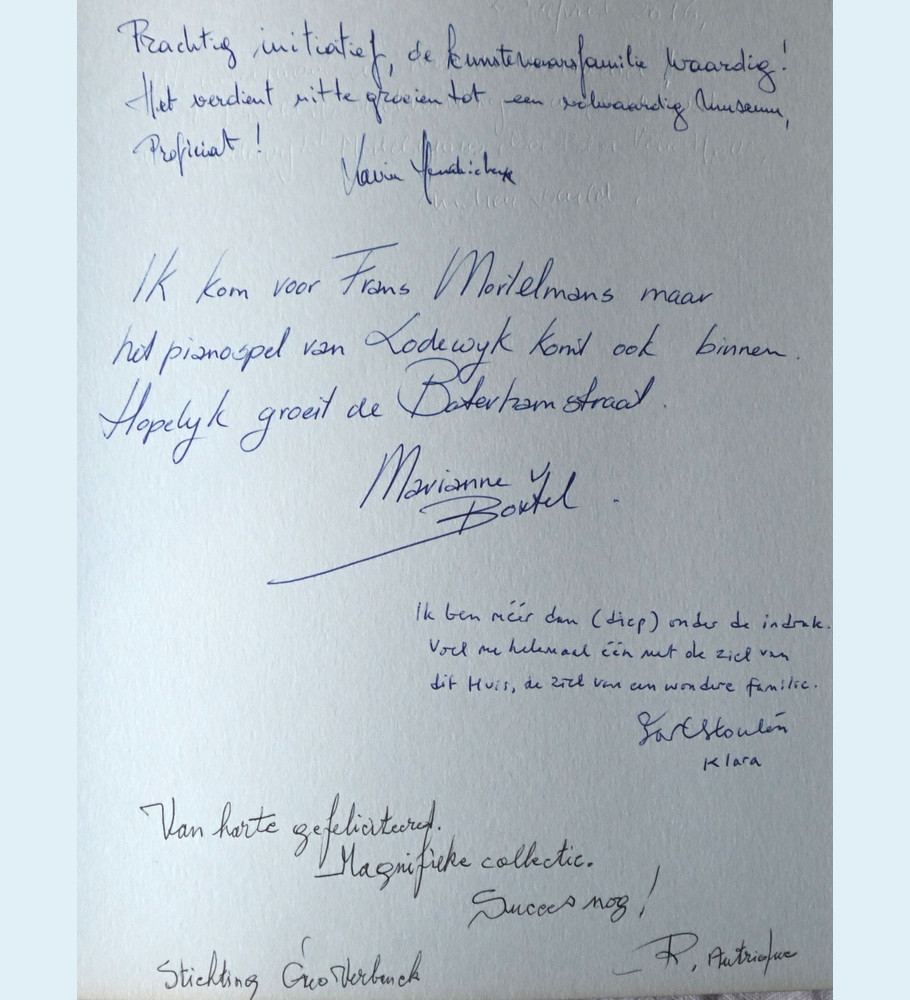 Prachtig initiatief, de kunstenaarsfamilie waardig!
Het verdient uit te groeien tot een volwaardig museum,
Proficiat!
Ik kom voor Frans Mortelmans maar
het pianospel van Lodewyk komt ook binnen.
Hopelyk groeit de Boterhamstraat.
Marianne
Boxtel
Ik ben méér dan (diep) onder de indruk.
Voel me helemaal één met de ziel van
dit Huis, de ziel van een wondere familie.
Klara
Van harte gefeliciteerd.
Magnifieke collectie.
Succes nog!
R. Autrique
Stichting